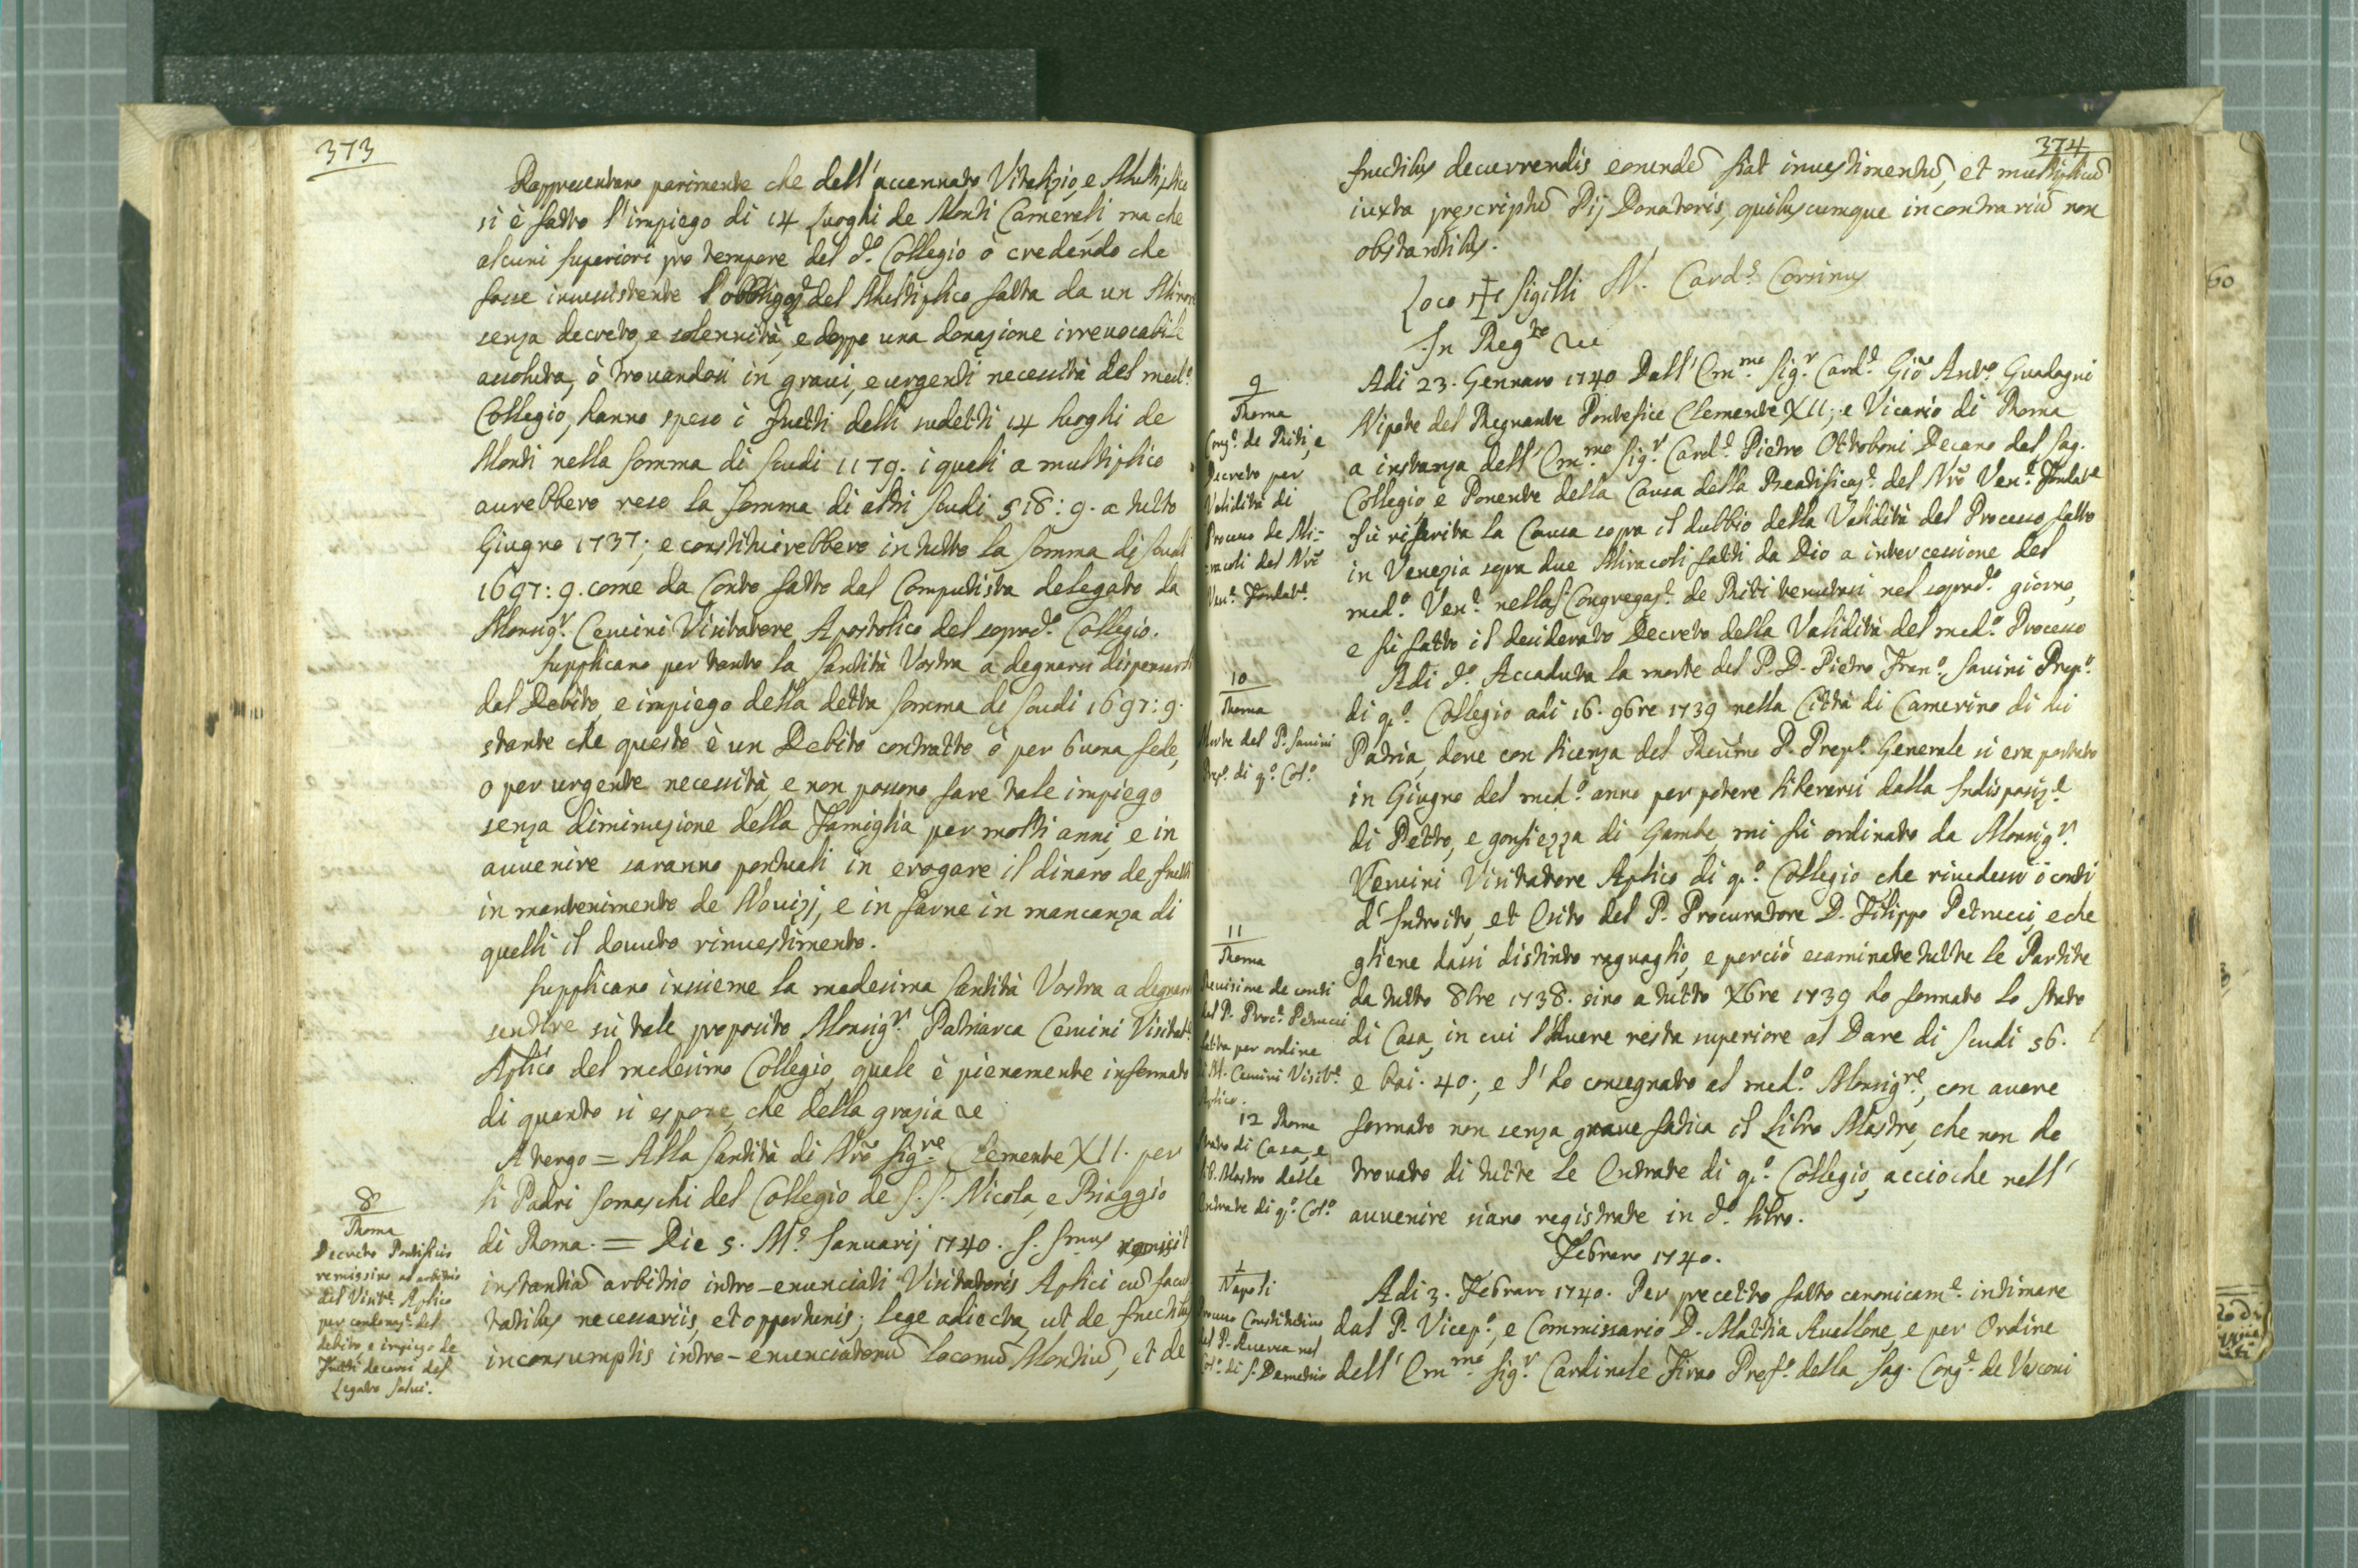 373
Rappresentano parimente che dell'accennato Vitalizio, e Multiplico
si è fatto l'impiego di 14 luoghi de Monti Camerali, ma che
alcuni superiori pro tempore del d.º Collegio ò credendo che
fosse inussistente l'obbligaz.e del Multiplico fatta da un Minore
senza decreto, e solennità, e doppo una donazione irrevocabile
assoluta, ò trovandosi in gravi, e urgenti necessità del med.º
Collegio, hanno speso i frutti delli sudetti 14 luoghi de
Monti nella somma di scudi 1179. i quali a multiplico
aurebbero reso la somma di altri scudi 518: 9. a tutto
Giugno 1737; e constituirebbero in tutto la somma di scudi
1697: 9. come da Conto fatto dal Computista delegato da
Monsig.r Cervini Visitatore Apostolico del soprad.º Collegio.
Supplicano per tanto la Santità Vostra a degnarsi dispensarli
dal Debito, e impiego della detta somma di scudi 1697: 9.
stante che questo è un Debito contratto ò per buona fede,
o per urgente necessità, e non possono fare tale impiego
senza diminuzione della Famiglia per molti anni, e in
auvenire saranno pontuali in erogare il dinaro de frutti
in mantenimento de Novizj, e in farne in mancanza di
quelli il dovuto rinvestimento.
Supplicano insieme la medesima Santità Vostra a degnarsi
sentire sù tale proposito Monsig.r Patriarca Cervini Visitat.e
Aplico del medesimo Collegio, quale è pienamente informato
di quanto si espone, che della grazia &c
A tergo = Alla Santità di Nrõ Sig.re Clemente XII. per
li Padri Somaschi del Collegio de S.S. Nicola, e Biaggio
di Roma. = Die 5. M.s Januarij 1740. S. Smus remisit
instantiã arbitrio intro-enunciati Visitatoris Aplici cũ facul
tatibus necessariis, et opportunis; lege adiecta, ut de fructibus
inconsumptis intro-enunciatorũ locorũ Montiũ, et de
8
Roma
Decreto Pontificio
remissivo ad arbitrio
del Visit.e Aplico
per condonaz.e del
debito, e impiego de
Frutti decorsi del
Legato Salvi.
374
fructibus decurrendis eorundẽ fiat investimentũ, et multiplicũ
iuxta prescriptũ Pij Donatoris, quibuscumque in contrariũ non
obstantibus.
Loco + Sigilli N. Card.s Corsinus
In Reg.to &c
9
Roma
Cong.e de Riti, e
Decreto per
Validità di
Processo de Mi-
racoli del Nrõ
Ven.e Fondat.e
Adi 23. Gennaro 1740 Dall'Em.mo Sig.r Card.e Giõ Ant.º Guadagni
Nipote del Regnante Pontefice Clemente XII, e Vicario di Roma
a instanza dell'Em.mo Sig.r Card.e Pietro Ottoboni Decano del Sag.
Collegio e Ponente della Causa della Beatificaz.e del Nrõ Ven.e Fondat.e
fù riferita la Causa sopra il dubbio della Validità del Processo fatto
in Venezia sopra due Miracoli fatti da Dio a intercessione del
med.º Ven.e nella S. Congregaz.e de Riti tenutasi nel soprad.º giorno,
e fù fatto il desiderato Decreto della Validità del med.º Processo
10
Roma
Morte del P. Savini
Prep.º di q.º Col.º
Adi d.º Accaduta la morte del P. D. Pietro Fran.º Savini Prep.º
di q.º Collegio adi 16. 9bre 1739 nella Città di Camerino di lui
Patria, dove con licenza del Reũmo P. Prep.º Generale si era portato
in Giugno del med.º anno per potere liberarsi dalla Indisposiz.e
di Petto, e gonfiezza di Gambe, mi fù ordinato da Monsig.r
Cervini Visitatore Aplico di q.º Collegio che rivedessi i conti
d'Introito, et Esito del P. Procuratore D. Filippo Petrucci, e che
gliene dassi distinto raguaglio, e perciò esaminate tutte le Partite
da tutto 8bre 1738. sino a tutto Xbre 1739 ho formato lo stato
di Casa, in cui l'Avere resta superiore al Dare di scudi 56.
e bai. 40; e l'ho consegnato al med.º Monsig.re, con avere
formato non senza grave fatica il Libro Mastro, che non ho
trovato di tutte le Entrate di q.º Collegio, accioche nell'
auvenire siano registrate in d.º libro.
11
Roma
Revisione de conti
del P. Proc.e Petrucci
fatta per ordine
di M. Cervini Visit.e
Aplico.
12 Roma
Stato di Casa, e
Lib. Mastro delle
Entrate di q.º Col.º
Febraro 1740.
1
Napoli
Processo Constitutivo
del P. Ruerra nel
Col.º di S. Demetrio
Adi 3. Febraro 1740. Per precetto fatto canonicam.e intimare
dal P. Vicep.º, e Commissario D. Mattia Avellone, e per Ordine
dell'Em.mo Sig.r Cardinale Firao Pref.º della Sag. Cong.e de Vescovi